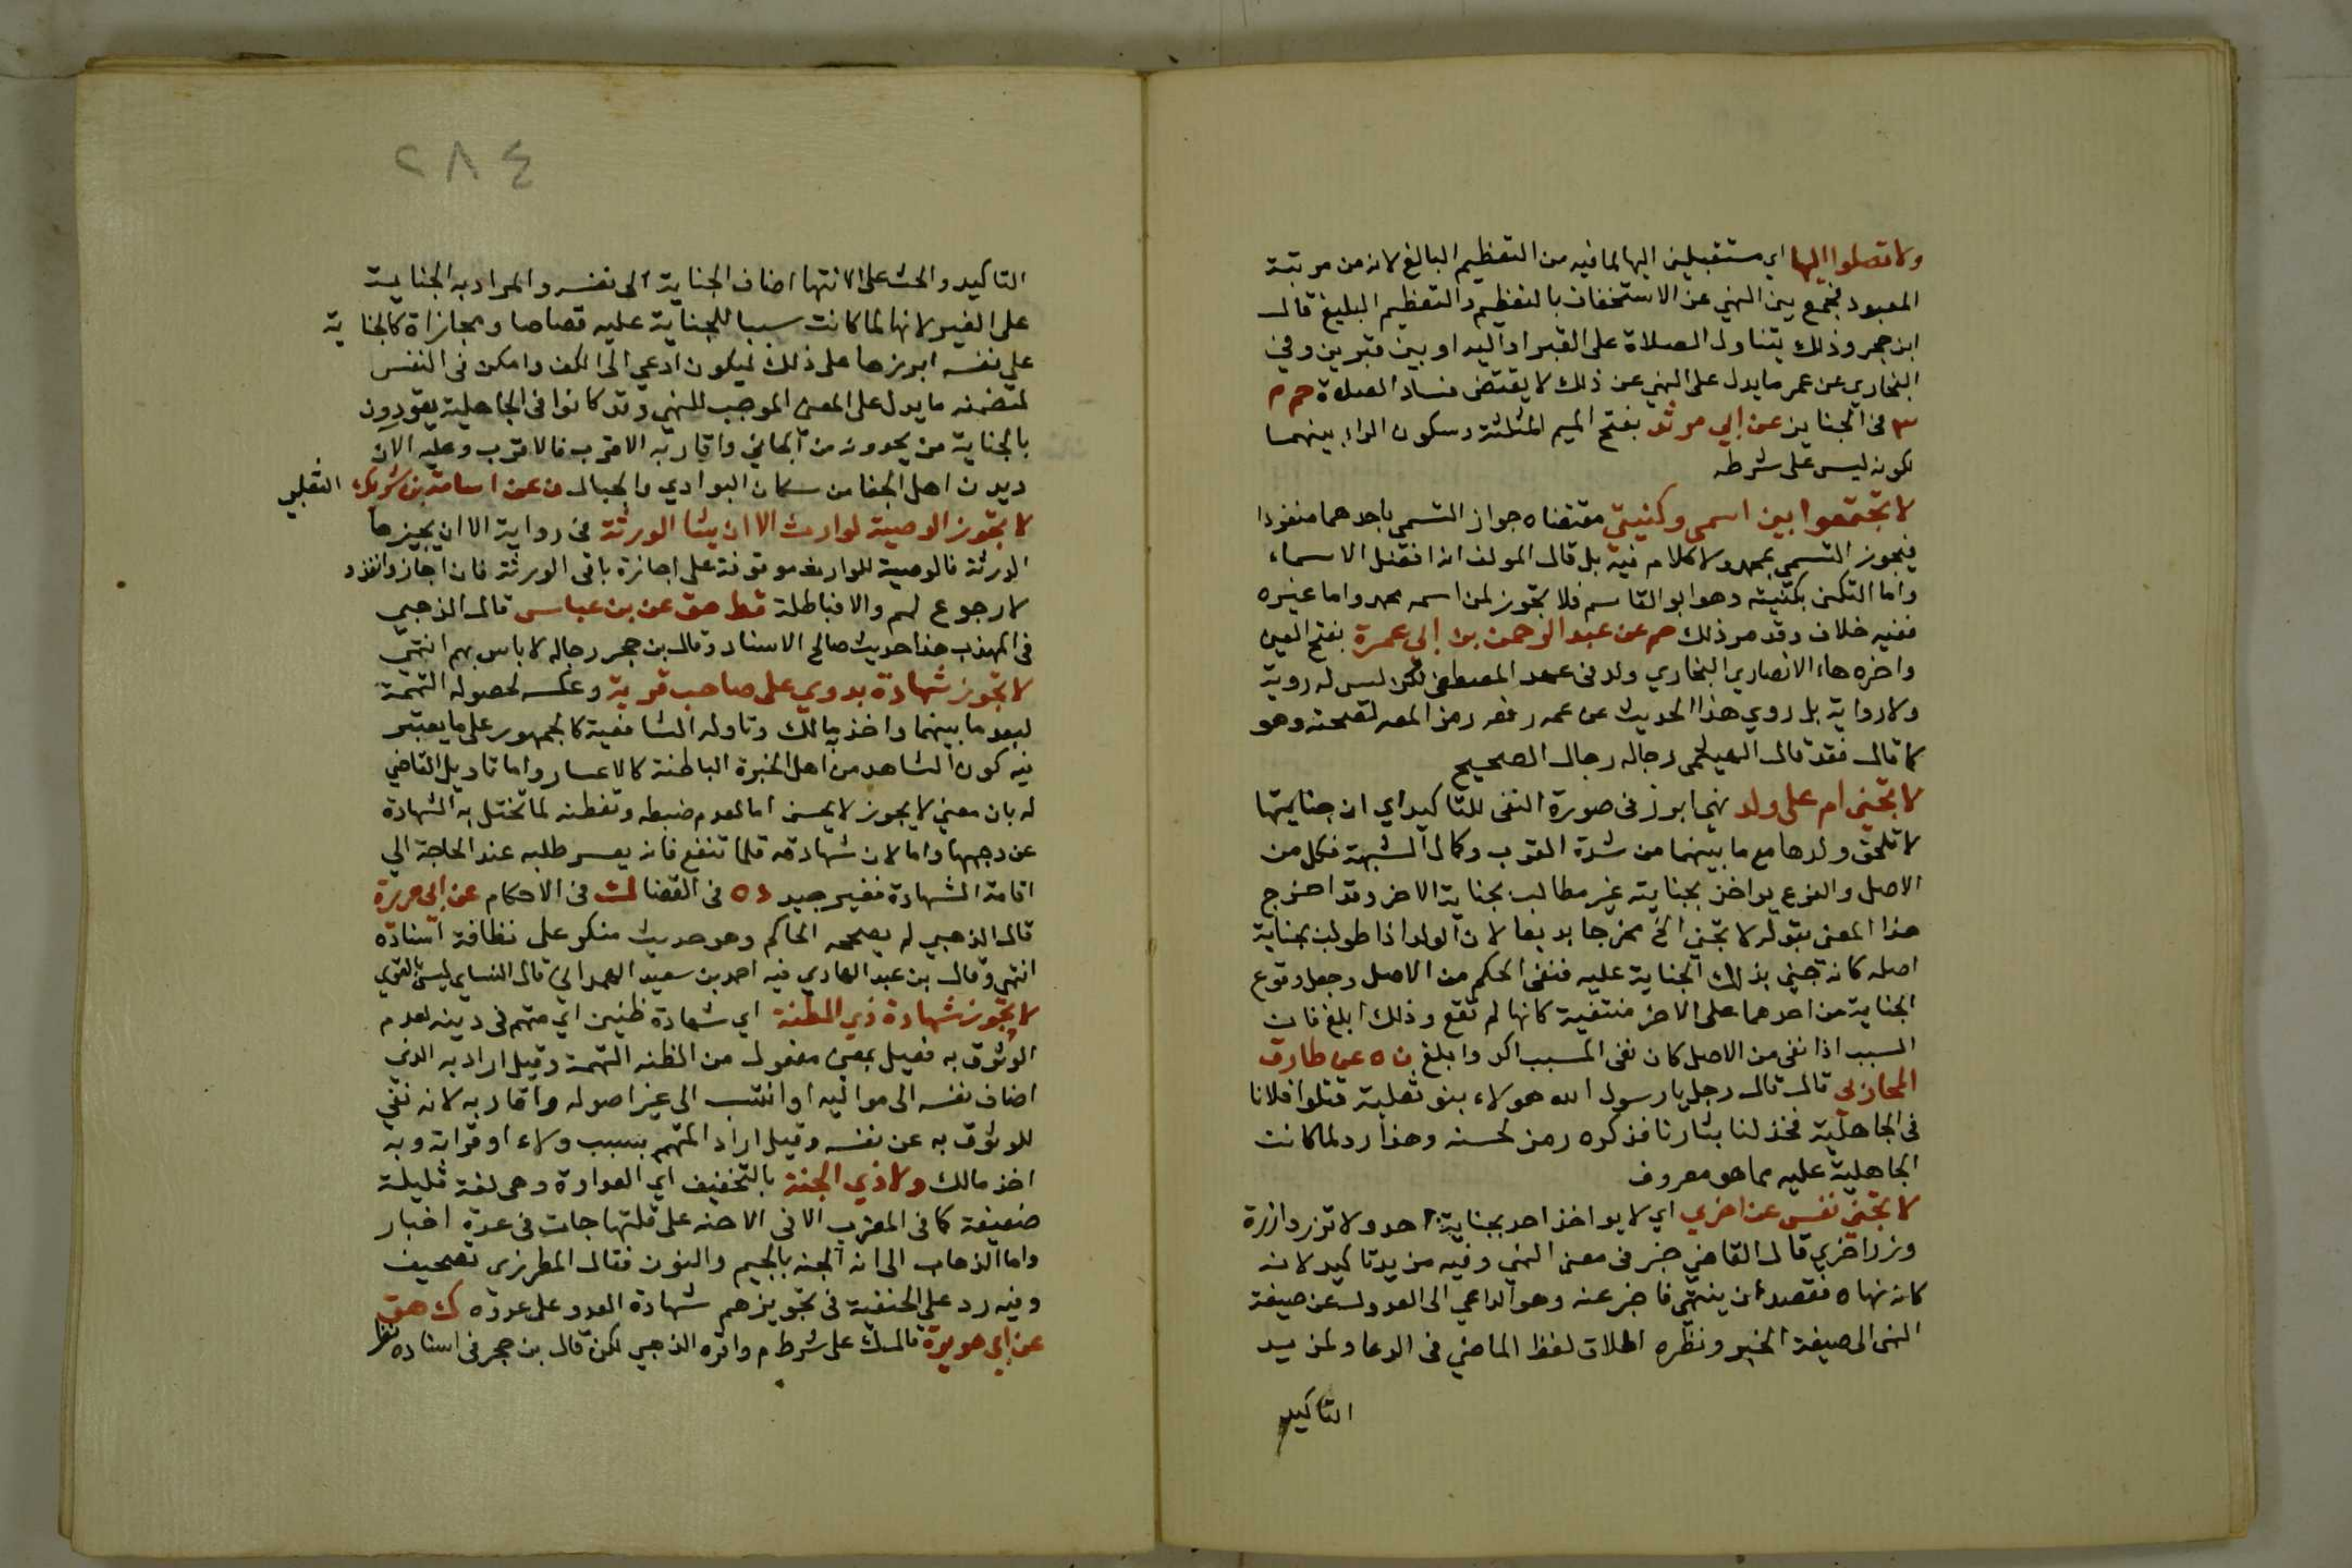 ولا تصلوا اليها اي مستقبلين اليها لما فيه من التعظيم البالغ لانه من مرتبة
المعبود فجمع بين النهي عن الاستخفاف بالتعظيم والتعظيم البليغ قال
ابن حجر وذلك يتناول الصلاة على القبر او اليه او بين قبرين وفي
البخاري عن عمر ما يدل على النهي عن ذلك لا يقتضي فساد الصلاة حم م
٣ في الجنايز عن ابي مرثد بفتح الميم المثلثة وسكون الراء بينهما
لكونه ليس على شرطه
لا تجتمعوا بين اسمي وكنيتي مقتضاه جواز التسمي باحدهما منفردا
فيجوز التسمي بمحمد ولا كلام فيه بل قال المولف انه افضل الاسماء
واما التكني بكنيته وهو ابو القاسم فلا يجوز لمن اسمه محمد واما غيره
ففيه خلاف وقد مر ذلك حم عن عبد الرحمن بن ابي عمرة بفتح العين
واخره هاء الانصاري البخاري ولد في عهد المصطفى لكن ليس له روية
ولا رواية بل روي هذا الحديث عن عمه رفعه رمز المص لصحته وهو
كما قال فقد قال الهيثمي رجاله رجال الصحيح
لا تجني ام على ولد نهي ابرز في صورة النفي للتاكيد اي ان جنايتها
لا تلحق ولدها مع ما بينهما من شدة القرب وكمال الشبهة فكل من
الاصل والفرع يواخذ بجنايته غير مطالب بجناية الاخر وقد اخرج
هذا المعنى بقوله لا تجني الخ مخرجا بديعا لان الولد اذا طولب بجناية
اصله كانه جني بذلك الجناية عليه فنفى الحكم من الاصل وجعل وقوع
الجناية من احدهما على الاخر منتفية كانها لم تقع وذلك ابلغ فان
السبب اذا نفي من الاصل كان نفي المسبب اكد وابلغ ن ه عن طارق
المحاربي قال قال رجل يا رسول الله هولاء بنو ثعلبة قتلوا فلانا
في الجاهلية فخذ لنا بثارنا فذكره رمز لحسنه وهذا رد لما كانت
الجاهلية عليه مما هو معروف
لا تجني نفس عن اخري اي لا يواخذ احد بجناية احد ولا تزر وازرة
وزر اخري قال القاضي خبر في معنى النهي وفيه مزيد تاكيد لانه
كانه نهاه فقصد ان ينتهي فاخبر عنه وهو الداعي الى العدول عن صيغة
النهي الى صيغة الخبر ونظره اطلاق لفظ الماضي في الدعا ولمزيد
التاكيد
٢٨٤
التاكيد والحث على الانتها اضاف الجناية الى نفسه والمراد به الجناية
على الغير لانها لما كانت سببا للجناية عليه قصاصا ومجازاة كالجناية
على نفسه ابرزها على ذلك ليكون ادعي الى الكف وامكن في النفس
لتضمنه ما يدل على المعنى الموجب للنهي وقد كانوا في الجاهلية يقودون
بالجناية من يجدونه من الجاني واقاربه الاقرب فالاقرب وعليه الان
ديدن اهل الجفا من سكان البوادي والجبال ن عن اسامة بن شريك الثعلبي
لا تجوز الوصية لوارث الا ان يشا الورثة في رواية الا ان يجيزها
الورثة فالوصية للوارث موقوفة على اجازة باقي الورثة فان اجازوا نفذ و
لا رجوع لهم والا فباطلة قط هق عن بن عباس قال الذهبي
في المهذب هذا حديث صالح الاسناد وقال بن حجر رجاله لا باس بهم انتهي
لا تجوز شهادة بدوي على صاحب قرية وعكسه لحصول التهمة
لبعد ما بينهما واخذ به مالك وتاوله الشافعية كالجمهور على ما يعتبر
فيه كون الشاهد من اهل الخبرة الباطنة كالاعسار واما تاويل القاضي
له بان معنى لا يجوز لا يحسن اما لعدم ضبطه وتفطنه لما تختل به الشهادة
عن وجهها واما لان شهادته قلما تنفع فانه يعسر طلبه عند الحاجة الي
اقامة الشهادة فغير جيد د ه في القضا ك في الاحكام عن ابي هريرة
قال الذهبي لم يصححه الحاكم وهو حديث منكر على نظافة اسناده
انتهي وقال بن عبد الهادي فيه احمد بن سعيد الهمداني قال النسايي ليس بالقوي
لا تجوز شهادة ذي الظنة اي شهادة ظنين اي متهم في دينه لعدم
الوثوق به فعيل بمعنى مفعول من الظنه التهمة وقيل اراد به الذي
اضاف نفسه الى مواليه او انتسب الى غير اصوله واقاربه لانه نفي
للوثوق به عن نفسه وقيل اراد المتهم بسبب ولاء او قرابة وبه
اخذ مالك ولا ذي الجنة بالتخفيف اي العداوة وهي لغة قليلة
ضعيفة كما في المغرب الا في الاحنه على قلتها جات في عدة اخبار
واما الذهاب الى انه الجنه بالجيم والنون فقال المطرزي تصحيف
وفيه رد على الحنفية في تجويزهم شهادة العدو على عدوه ك هق
عن ابي هريرة قال ك على شرط م واقره الذهبي لكن قال بن حجر في اسناده نظر